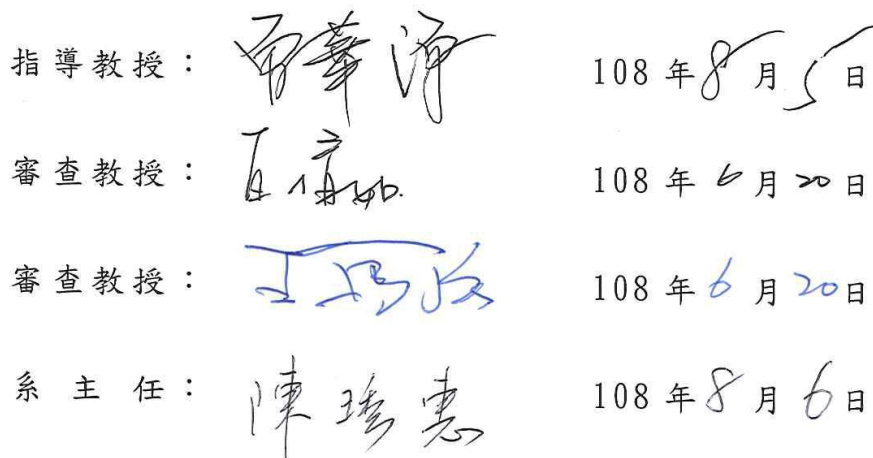 指導教授： 108年8月5日
審查教授： 108年6月20日
審查教授： 108年6月20日
系主任：陳琇惠 108年8月6日